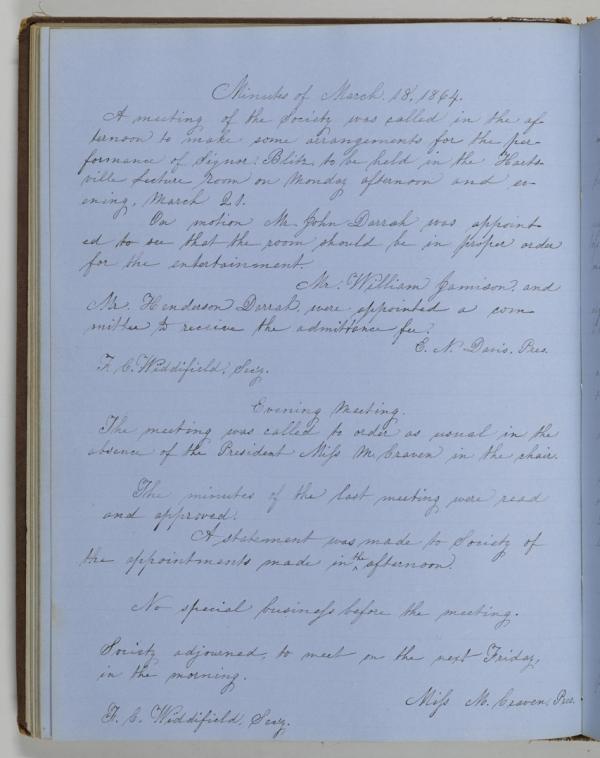 Minutes of March. 18, 1864.
A meeting of the Society was called in the af-
ternoon to make some arrangements for the per-
formance of Signor. Blitz, to be held in the Harts-
ville Lecture room on Monday afternoon and ev-
ening, March 21.
On motion Mr. John Darrah was appoint-
ed to see that the room should be in proper order
for the entertainment.
Mr. William Jamison, and
Mr. Henderson Darrah, were appointed a com-
mittee to receive the admittance fee.
E. N. Davis, Pres.
F. C. Widdifield, Secy.
Evening Meeting.
The meeting was called to order as usual in the
absence of the President Miss M. Craven in the chair.
The minutes of the last meeting were read
and approved.
A statement was made to Society of
the appointments made in the afternoon.
No special business before the meeting.
Society adjourned, to meet on the next Friday,
in the morning.
Miss M. Craven, Pres.
F. C. Widdifield, Secy.